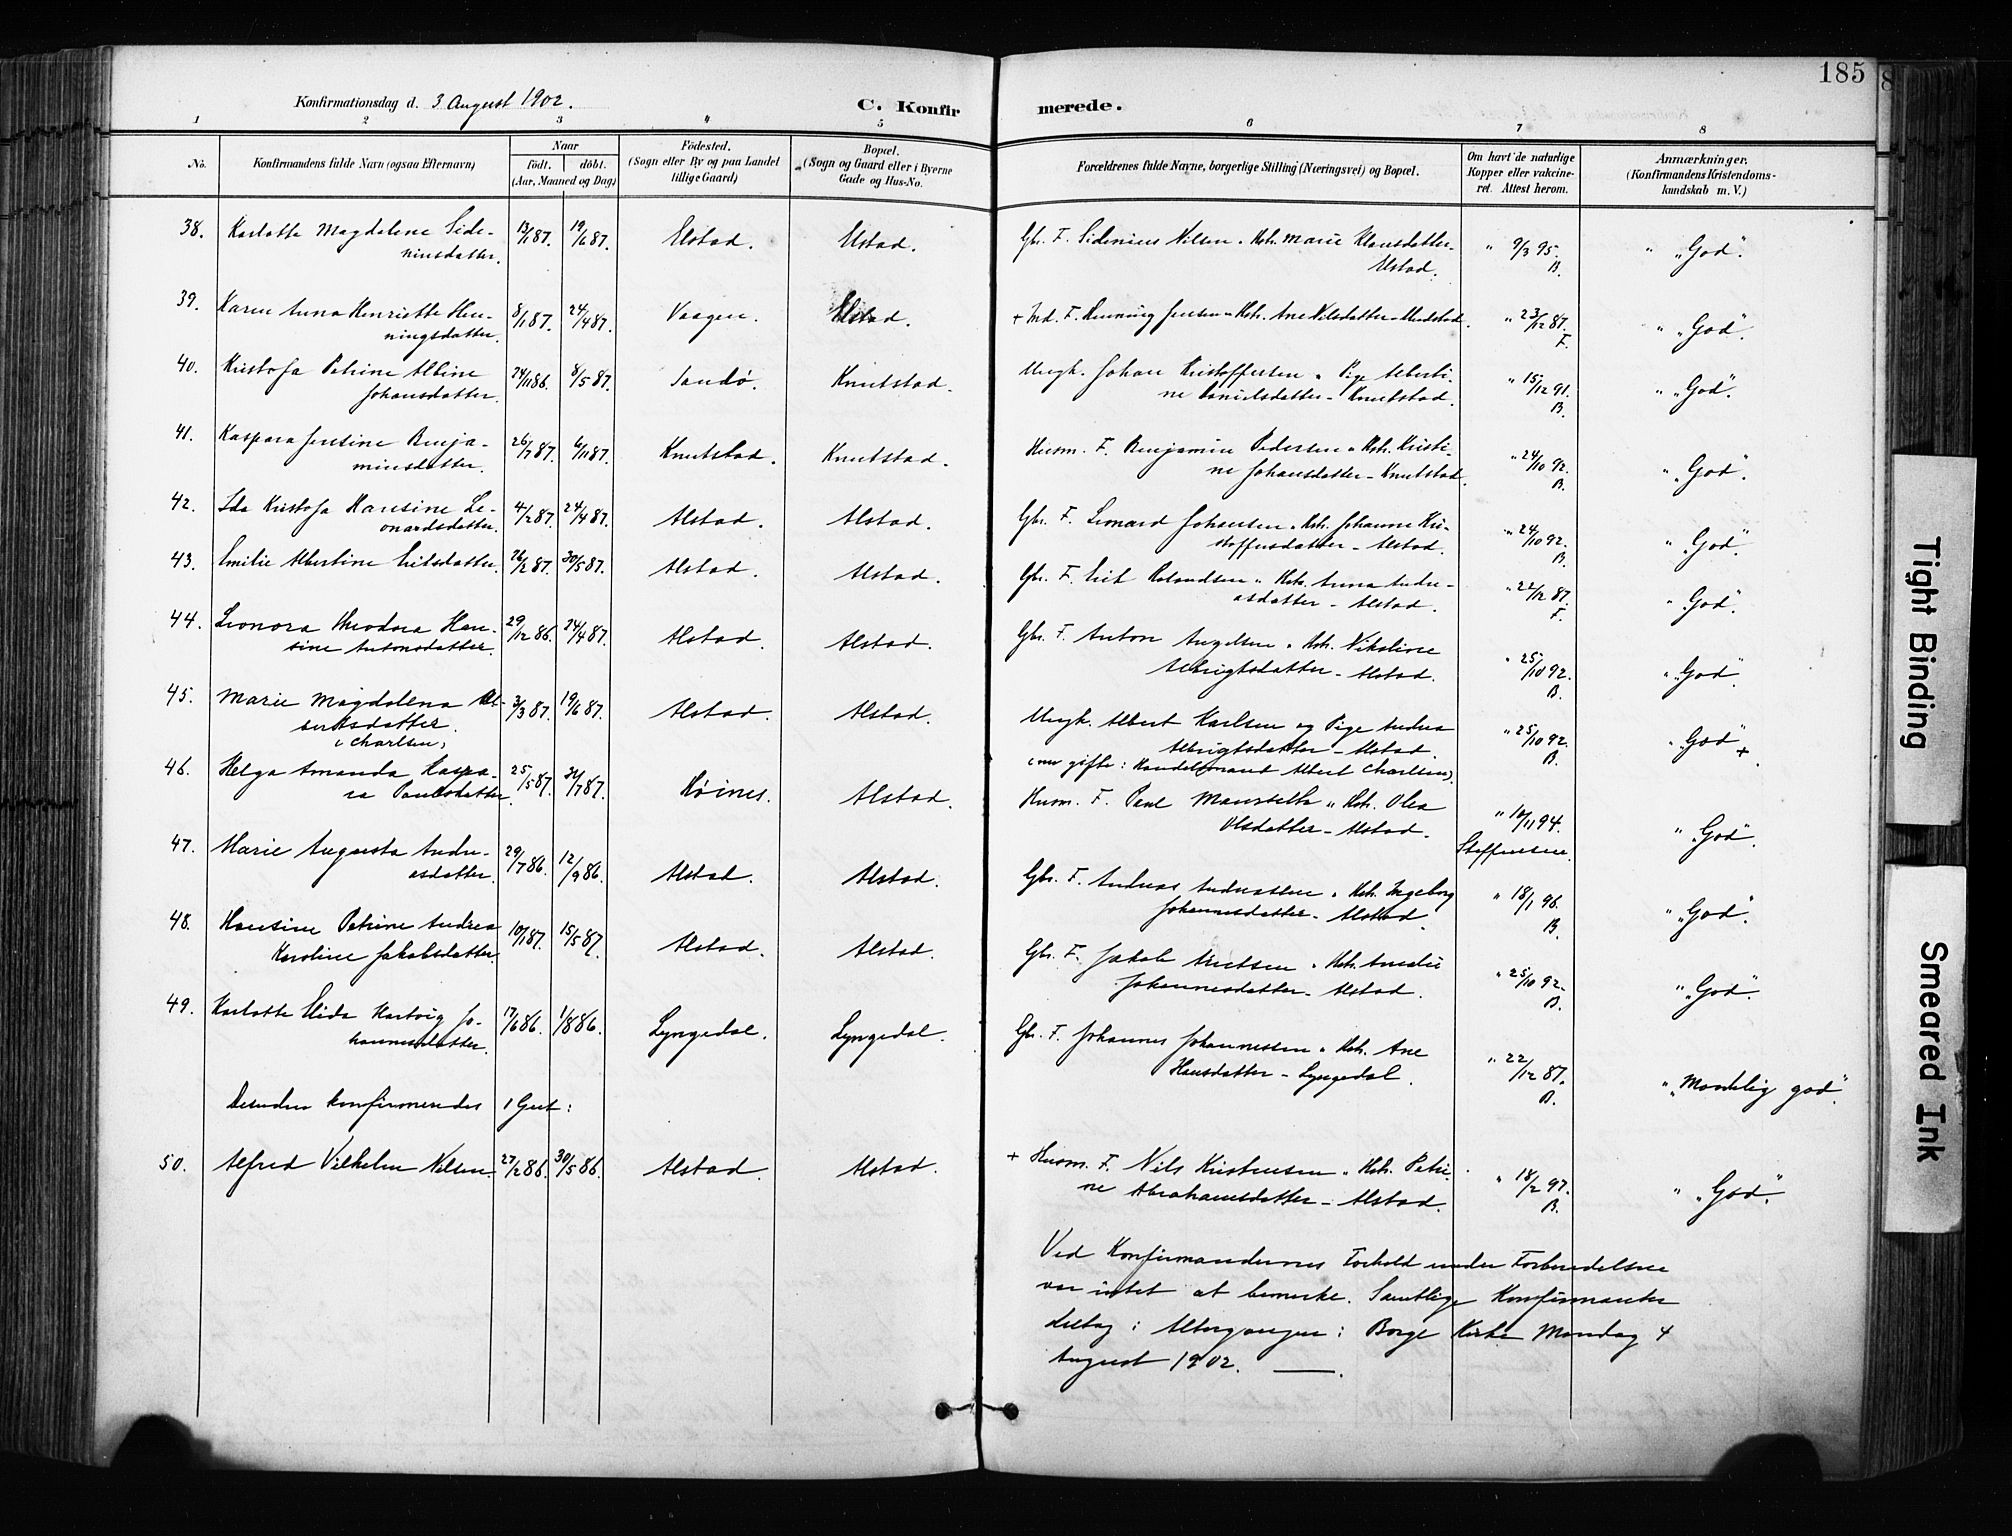 185
Konfirmationsdag d. 3 August 1902.
C. Konfirmerede.
1 2 3 4 5 6 7 8
No.
Konfirmandens fulde Navn (ogsaa Efternavn)
Naar
födt. döbt.
(Aar, Maaned og Dag)
Födested.
(Sogn eller By og paa Landet
tillige Gaard)
Bopæl.
(Sogn og Gaard eller i Byerne
Gade og Hus-No.
Forældrenes fulde Navne, borgerlige Stilling (Næringsvei) og Bopæl.
Om havt de naturlige
Kopper eller vakcine-
ret. Attest herom.
Anmærkninger.
(Konfirmandens Kristendoms-
kundskab m. V.)
38. Karlotte Magdalene Side- 13/1 87. 19/6 87. Alstad. Alstad. Gbr. F. Sidenius Nilsen " Kstr. Marie Klausdatter- " 9/3 95. " "God".
ninsdatter. Alstad. B.
39. Karen Anna Henriette Hen- 8/1 87. 24/4 87. Vaagen. Alstad. + Ind. F. Henning Jensen " Kstr. Ane Nilsdatter - " 23/12 87. " "God".
ningsdatter. F.
40. Kristofa Petrine Albine 24/11 86. 8/5 87. Sandö. Knutstad. Ungk. Johan Kristoffersen " Pige Alberti- " 15/12 91. " "God".
Johansdatter. ne Danielsdatter - Knutstad. B.
41. Kaspara Jensine Benja- 26/7 87. 6/11 87. Knutstad. Knutstad. Husm. F. Benjamin Pedersen " Kstr. Kristi- " 24/10 92. " "God".
minsdatter. ne Johansdatter - Knutstad. B.
42. Ida Kristofa Hansine Le- 4/2 87. 24/4 87. Alstad. Alstad. Gbr. F. Leonard Johansen " Kstr. Johanna Kri- " 24/10 92. " "God".
onardsdatter. stoffersdatter - Alstad. B.
43. Emilie Albertine Eritsdatter. 26/2 87. 30/5 87. Alstad. Alstad. Gbr. F. Erit Rolandsen " Kstr. Anna Andre- " 22/12 87. " "God".
asdatter - Alstad. F.
44. Leonora Theodora Han- 29/12 86. 24/4 87. Alstad. Alstad. Gbr. F. Anton Angelsen " Kstr. Nikoline " 25/10 92. " "God".
sine Antonsdatter. Albrigtsdatter - Alstad. B.
45. Marie Magdalena Al- 3/3 87. 19/6 87. Alstad. Alstad. Ungk. Albert Karlsen og Pige Andrea " 25/10 92. " "God" +
bertsdatter. Albrigtsdatter - Alstad. B.
(Charlsen) (nu gifte: Handelsmand Albert Charlsen).
46. Helga Amanda Kaspa- 25/5 87. 31/7 87. Höines. Alstad. Husm. F. Paul " Kstr. Olea " 10/11 94. " "God".
ra Paulsdatter. Olsdatter - Alstad. Steffensen.
47. Marie Augusta Andre- 29/7 86. 12/9 86. Alstad. Alstad. Gbr. F. Andreas Andreassen " Kstr. Ingeborg " 18/1 96. " "God".
asdatter. Johannesdatter - Alstad. B.
48. Hansine Petrine Andrea 10/1 87. 15/5 87. Alstad. Alstad. Gbr. F. Jakob " Kstr. Amalie " 25/10 92. " "God".
Karoline Jakobsdatter. Johannesdatter - Alstad. B.
49. Karlotte Elida Hartvig Jo- 17/6 86. 1/8 86. Lyngedal. Lyngedal. Gbr. F. Johannes Johannessen " Kstr. Ane " 22/12 87. " "Maadelig god".
hannesdatter. Hansdatter - Lyngedal. B.
Desuden konfirmeredes 1 Gut:
50. Alfred Vilhelm Nilsen. 27/2 86. 30/5 86. Alstad. Alstad. + Husm. F. Nils Kristensen " Kstr. Petri- " 18/2 97. " "God".
ne Abrahamsdatter - Alstad. B.
Ved Konfirmandernes Forhold under Forberedelsen
var intet at bemerke. Samtlige Konfirmanter
deltog i Altergangen i Borge Kirke Mandag 4
August 1902. —
Tight Binding
Smeared Ink